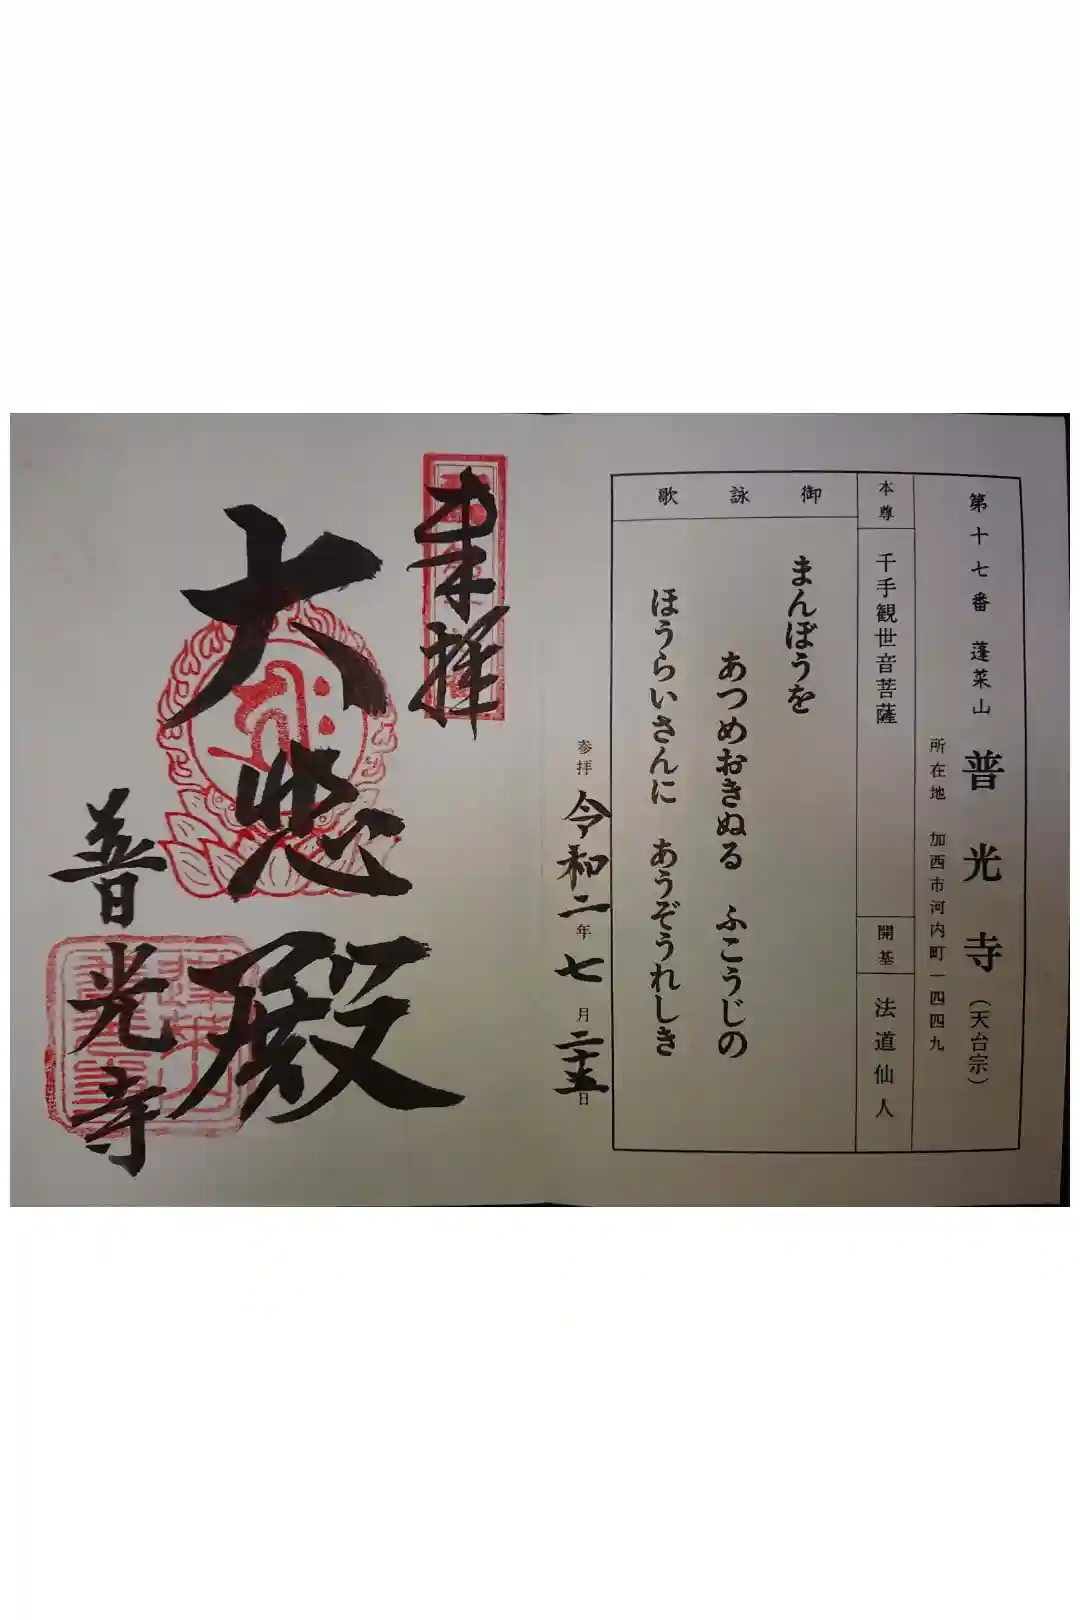 第十七番 蓬莱山 普光寺（天台宗）
所在地 加西市河内町一四四九
本尊 千手観世音菩薩
開基 法道仙人
御詠歌
まんぼうを
あつめおきぬる ふこうじの
ほうらいさんに あうぞうれしき
参拝 令和二年七月二十五日
奉拝
大悲殿
普光寺